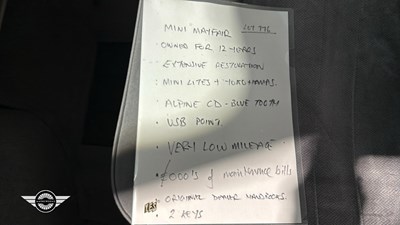 MINI MAYFAIR LOT 776
• OWNER FOR 12 YEARS
• EXTENSIVE RESTORATION
• MINI LITES + YOKOHAMAS.
• ALPINE CD - BLUE TOOTH
• USB POINT.
• VERY LOW MILEAGE
• £000's of maintenance bills
• ORIGINAL OWNER HANDBOOKS.
• 2 KEYS